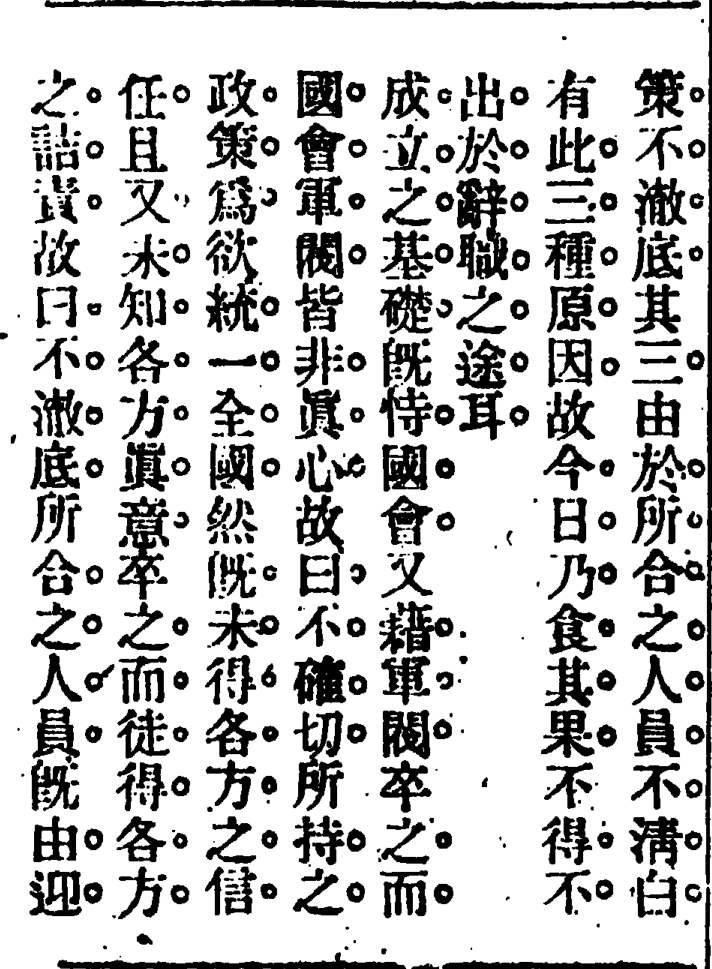 策不澈底其三由於所合之人員不清白
有此三種原因故今日乃食其果不得不
出於辭職之途耳
成立之基礎既恃國會又藉軍閥卒之而
國會軍閥皆非眞心故曰不確切所持之
政策爲欲統一全國然既未得各方之信
任且又未知各方眞意卒之而徒得各方
之詰責故曰不澈底所合之人員既由迎